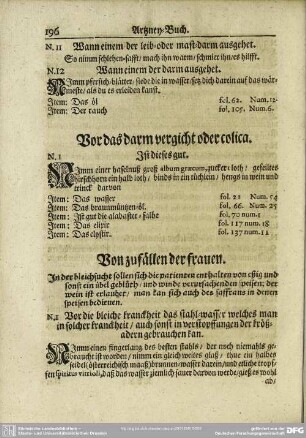 196 Artzney-Buch.
N.11 Wann einem der leib-oder mast-darm ausgehet.
So nimm schlehen-safft/ mach ihn warm/ schmier ihn/ es hilfft.
N.12 Wann einem der darm ausgehet.
Nimm pfersich-blätter/ siede die in wasser/ setz dich darein auf das wär-
meste/ als du es erleiden kanst.
Item: Das öl fol. 62. Num. 12.
Item: Der rauch fol. 105. Num. 6.
Vor das darm vergicht oder colica.
N.1 Ist dieses gut.
Nimm einer haselnuß groß album græcum, zucker 1 loth/ gefeiltes
hirschhorn ein halb loth/ binds in ein tüchlein/ hengs in wein und
trinck darvon
Item: Das wasser fol. 22 Num. 54
Item: Das braunmüntzen-öl. fol. 66. Num. 25
Item: Ist gut die alabaster-salbe fol. 70 num. 1
Item: Das elixir fol. 117 num. 18
Item: Das clystir. fol. 137 num. 11
Von zufällen der frauen.
In der bleichsucht sollen sich die patienten enthalten von eßig und
sonst in übel geblüt/ und winde verursachenden speisen; der
wein ist erlaubet/ man kan sich auch des saffrans in denen
speisen bedienen.
N.1 Vor die bleiche kranckheit das stahl-wasser welches man
in solcher kranckheit/ auch sonst in verstopffungen der kröß-
adern gebrauchen kan.
Nimm einen fingerlang des besten stahls/ der noch niemahls ge-
braucht ist worden/ nimm ein gleich weites glaß/ thue ein halbes
seidel öfterreichisch maaß/ brunnen-wasser darein/ und etliche tropf-
fen spiritus vitrioli, daß das wasser ziemlich sauer darvon werde/ gieß es wohl